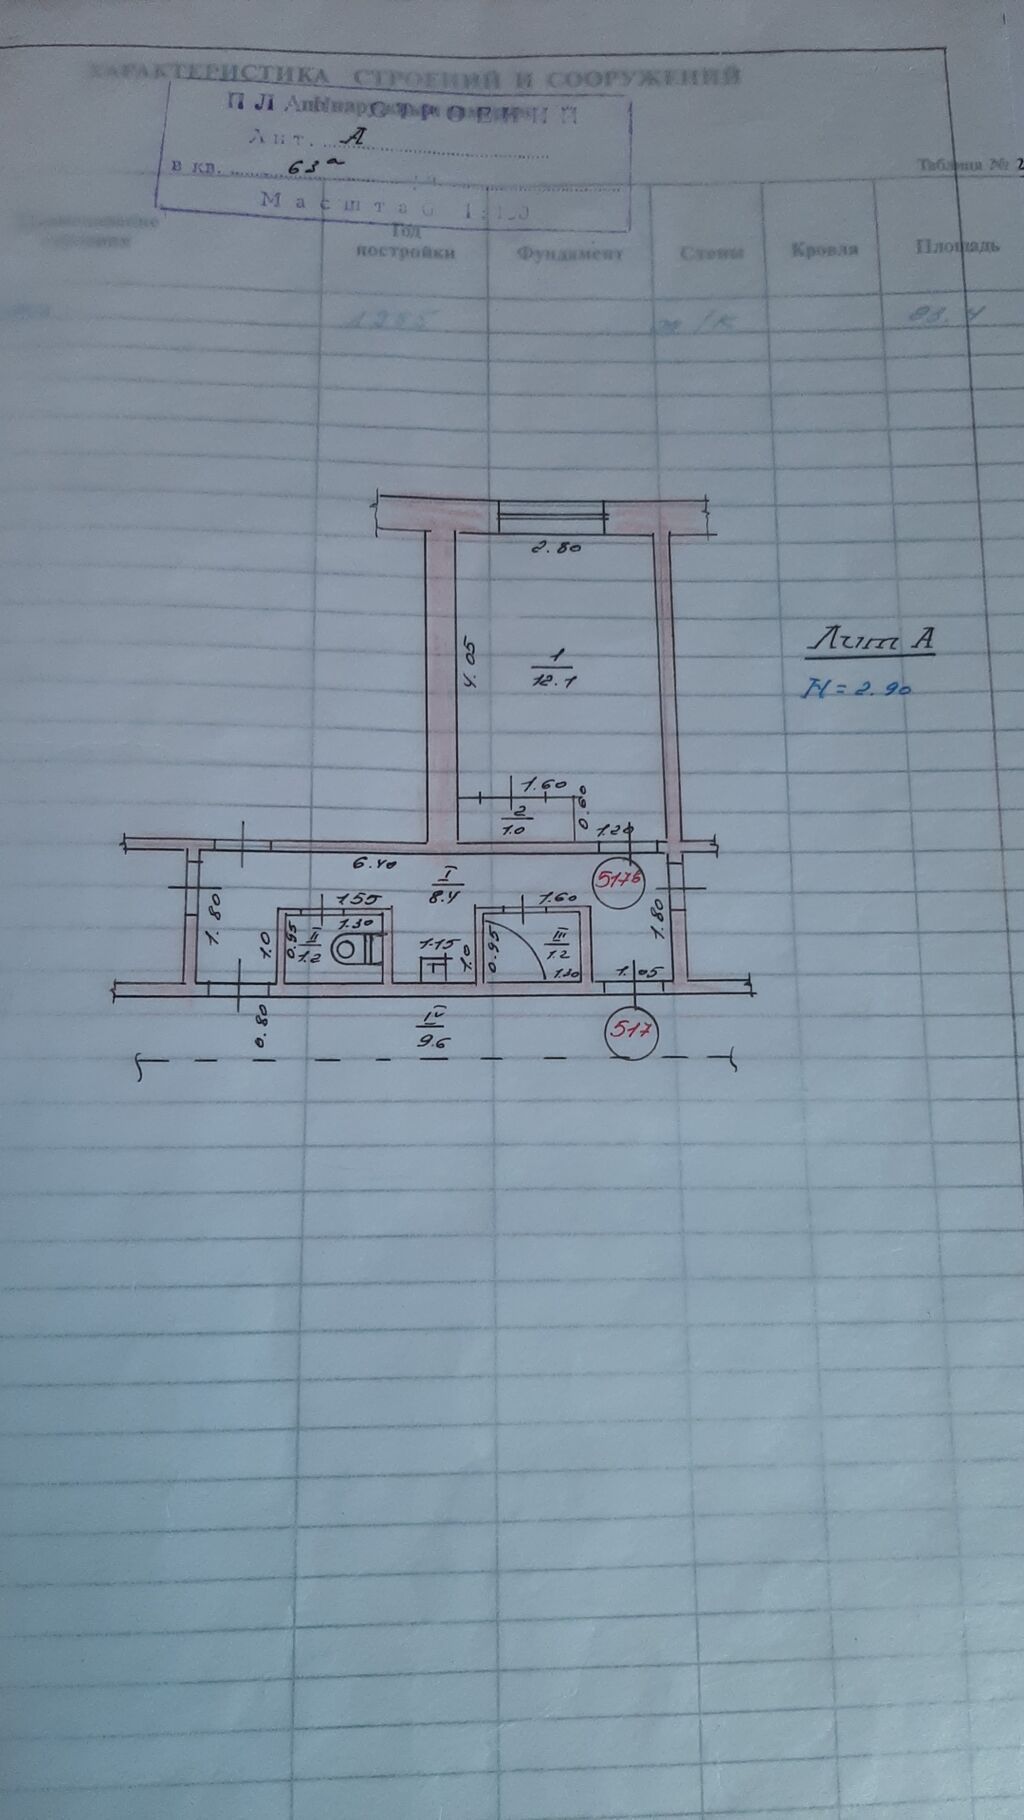 ХАРАКТЕРИСТИКА СТРОЕНИЙ И СООРУЖЕНИЙ
СТРОЕНИЙ
Лит. А
в кв. 63а
Масштаб
Таблица № 2
Год постройки
Фундамент
Стены
Кровля
Площадь
2.80
4.05
1
12.1
Лит А
H = 2.90
1.60
0.60
2
1.0
1.20
6.40
I
8.4
517б
1.80
1.55
1.60
1.80
1.0
0.95
III
1.2
1.30
1.15
1.0
0.95
III
1.2
1.30
1.05
0.80
IV
9.6
517